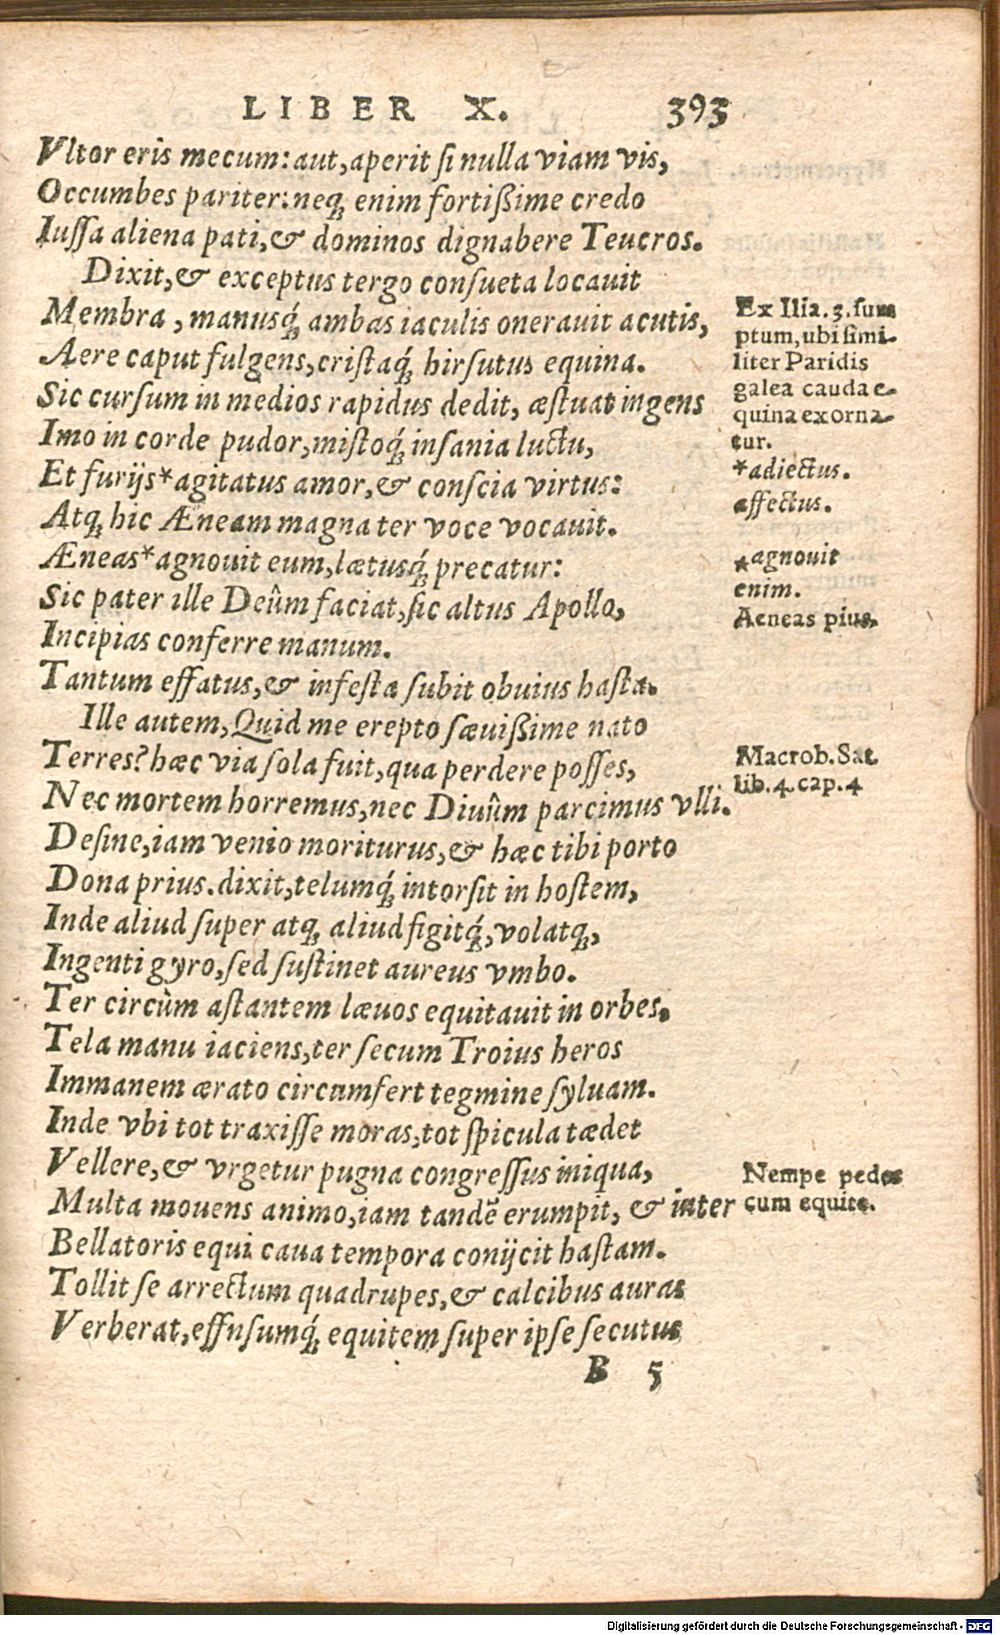 LIBER X. 393
Vltor eris mecum: aut, aperit ſi nulla viam vis,
Occumbes pariter: neq; enim fortiſsime credo
Iuſſa aliena pati, & dominos dignabere Teucros.
Dixit, & exceptus tergo conſueta locauit
Membra, manusq́; ambas iaculis onerauit acutis,
Aere caput fulgens, criſtaq́; hirſutus equina.
Sic curſum in medios rapidus dedit, æſtuat ingens
Imo in corde pudor, miſtoq́; inſania luctu,
Et furijs* agitatus amor, & conſcia virtus:
Atq; hic Æneam magna ter voce vocauit.
Æneas* agnouit eum, lætusq́; precatur:
Sic pater ille Deûm faciat, ſic altus Apollo,
Incipias conferre manum.
Tantum effatus, & infeſta ſubit obuius haſta.
Ille autem, Quid me erepto ſæuiſsime nato
Terres? hæc via ſola fuit, qua perdere poſſes,
Nec mortem horremus, nec Diuûm parcimus vlli.
Deſine, iam venio moriturus, & hæc tibi porto
Dona prius. dixit, telumq́; intorſit in hoſtem,
Inde aliud ſuper atq; aliud figitq́;, volatq;,
Ingenti gyro, ſed ſuſtinet aureus vmbo.
Ter circùm aſtantem læuos equitauit in orbes.
Tela manu iaciens, ter ſecum Troius heros
Immanem ærato circumfert tegmine ſyluam.
Inde vbi tot traxiſſe moras, tot ſpicula tædet
Vellere, & vrgetur pugna congreſſus iniqua,
Multa mouens animo, iam tandẽ erumpit, & inter
Bellatoris equi caua tempora conijcit haſtam.
Tollit ſe arrectum quadrupes, & calcibus auras
Verberat, effuſumq́; equitem ſuper ipſe ſecutus
B 5
Ex Ilia. 3. ſum
ptum, ubi ſimi-
liter Paridis
galea cauda e-
quina exorna-
tur.
*adiectus.
affectus.
*agnouit
enim.
Aeneas pius.
Macrob. Sat.
lib. 4. cap. 4
Nempe pedes
cum equite.
Digitalisierung gefördert durch die Deutsche Forschungsgemeinschaft - DFG